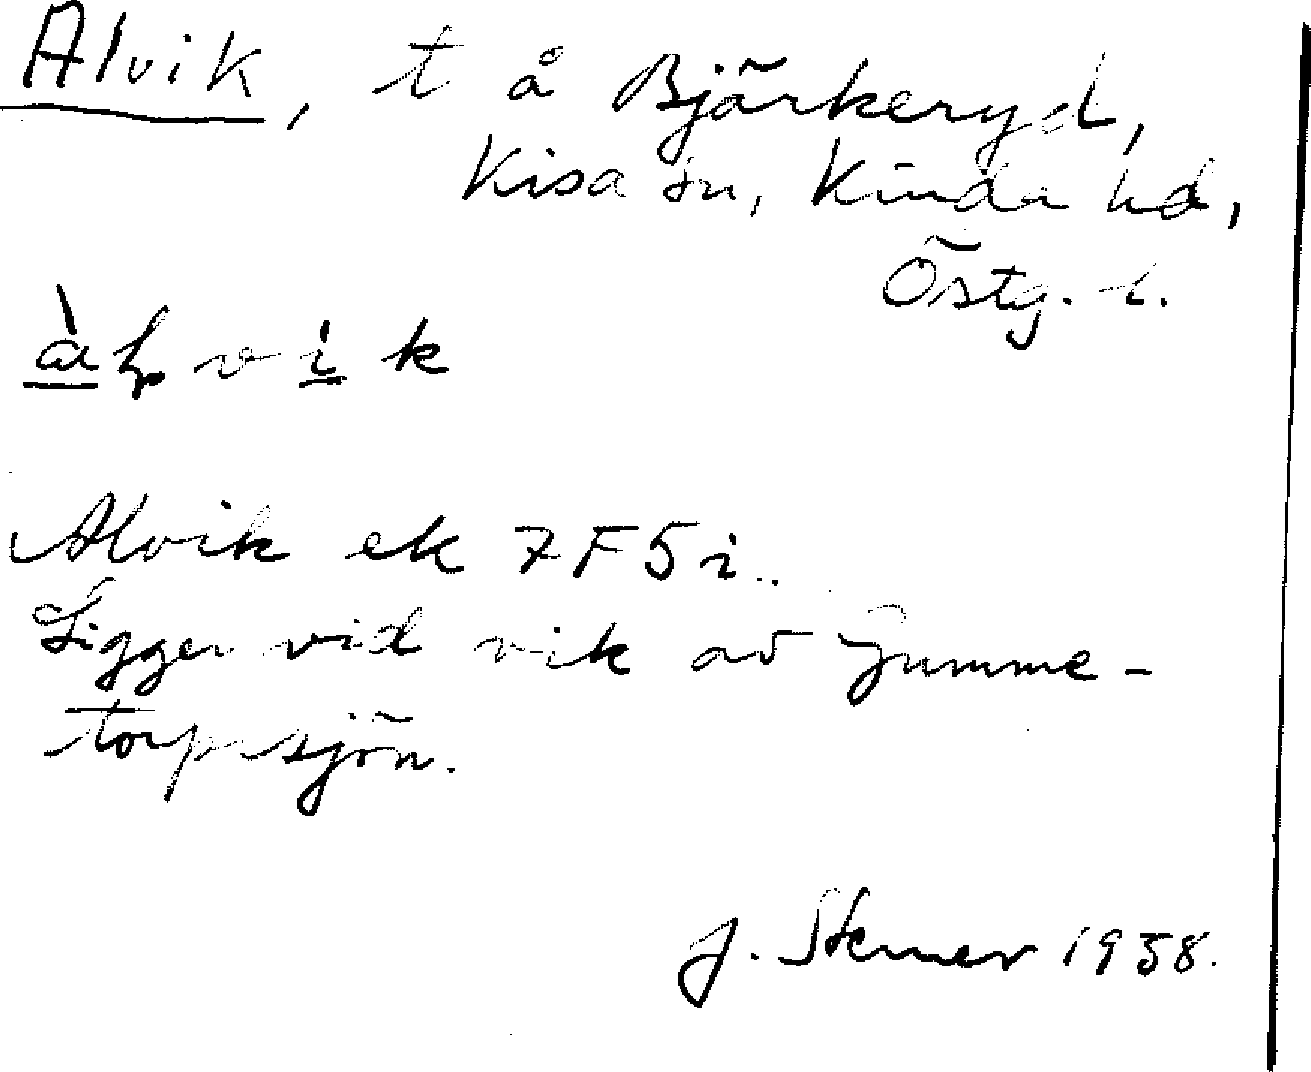 Alvik, t å Bjärkeryd,
Kisa sn, Kinda hd,
Östg. l.
àlvik
Alvik ek 7F5i.
Ligger vid vik av Jumme-
torpssjön.
J. Sterner 1958.